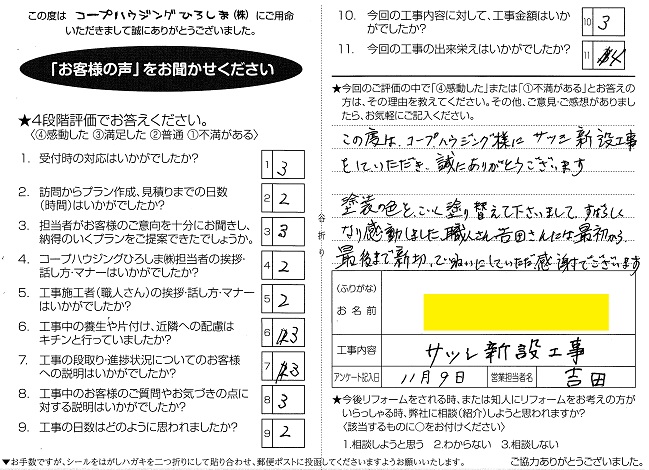 この度は コープハウジングひろしま(株) にご用命
いただきまして誠にありがとうございました。
「お客様の声」をお聞かせください
★4段階評価でお答えください。
〈④感動した ③満足した ②普通 ①不満がある〉
1. 受付時の対応はいかがでしたか?
1 3
2. 訪問からプラン作成、見積りまでの日数
(時間)はいかがでしたか?
2 2
3. 担当者がお客様のご意向を十分にお聞きし、
納得のいくプランをご提案できたでしょうか。
3 3
4. コープハウジングひろしま㈱担当者の挨拶・
話し方・マナーはいかがでしたか?
4 2
5. 工事施工者(職人さん)の挨拶・話し方・マナー
はいかがでしたか?
5 2
6. 工事中の養生や片付け、近隣への配慮は
キチンと行っていましたか?
6 3
7. 工事の段取り・進捗状況についてのお客様
への説明はいかがでしたか?
7 3
8. 工事中のお客様のご質問やお気づきの点に
対する説明はいかがでしたか?
8 3
9. 工事の日数はどのように思われましたか?
9 2
▼お手数ですが、シールをはがしハガキを二つ折りにして貼り合わせ、郵便ポストに投函してくださいますようお願いいたします。
谷折り
10. 今回の工事内容に対して、工事金額はいか
がでしたか?
10 3
11. 今回の工事の出来栄えはいかがでしたか?
11 4
★今回のご評価の中で「④感動した」または「①不満がある」とお答え
の方は、その理由を教えてください。その他、ご意見・ご感想がありまし
たら、お気軽にご記入ください。
この度は、コープハウジング様に サッシ新設工事
をしていただき、誠にありがとうございます
塗装の色と、こいく塗り替えて下さいまして、すばらしく
なり感動しました。職人さん、吉田さんには最初から、
最後まで新切、ていねいにしていただき感謝でございます
(ふりがな)
お名前
工事内容 サッシ新設工事
アンケート記入日 11月9日 営業担当者名 吉田
★今後リフォームをされる時、または知人にリフォームをお考えの方が
いらっしゃる時、弊社に相談(紹介)しようと思われますか?
〈該当するものに○をお付けください〉
1.相談しようと思う 2.わからない 3.相談しない
ご協力ありがとうございました。